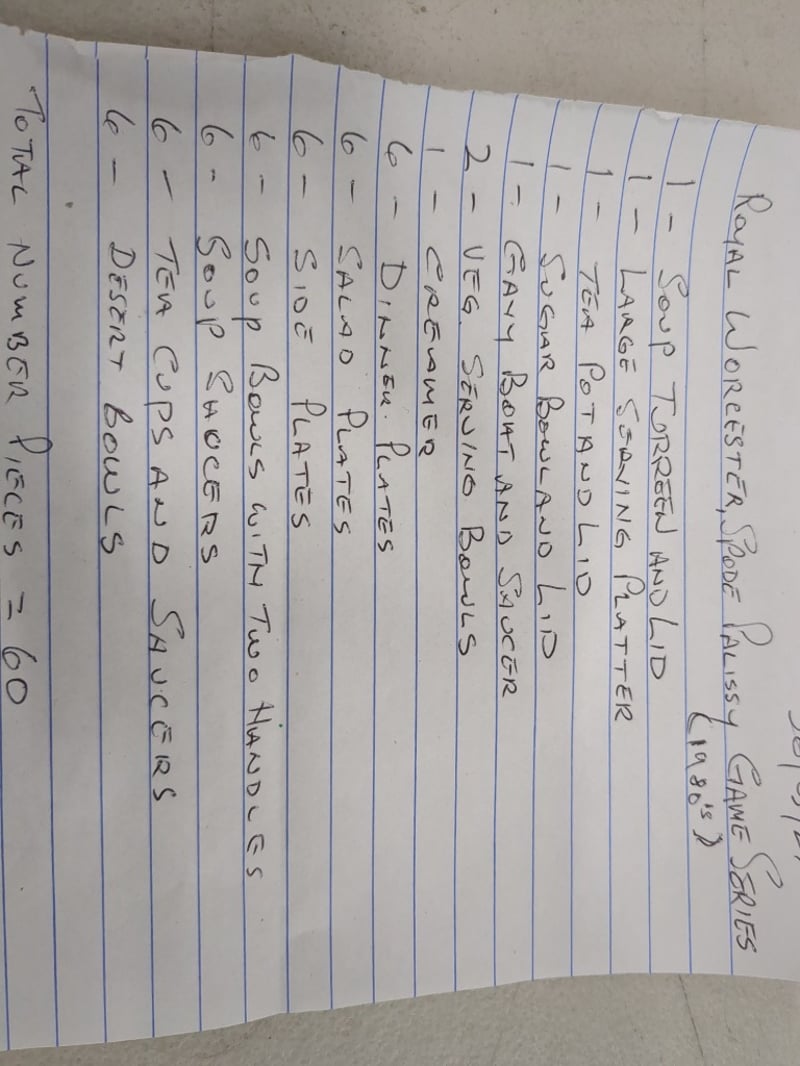 ROYAL WORCESTER, SPODE PALISSY GAME SERIES
(1980's)
1 - SOUP TURREEN AND LID
1 - LARGE SERVING PLATTER
1 - TEA POT AND LID
1 - SUGAR BOWL AND LID
1 - GAVY BOAT AND SAUCER
2 - VEG. SERVING BOWLS
1 - CREAMER
6 - DINNER PLATES
6 - SALAD PLATES
6 - SIDE PLATES
6 - SOUP BOWLS WITH TWO HANDLES
6 - SOUP SAUCERS
6 - TEA CUPS AND SAUCERS
6 - DESERT BOWLS
TOTAL NUMBER PIECES = 60